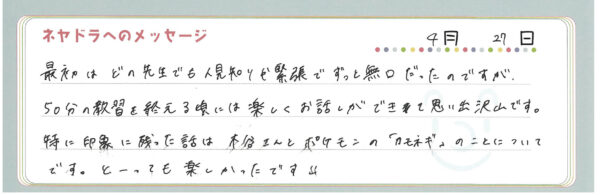 ネヤドラへのメッセージ
4月 27日
最初はどの先生でも人見知りや緊張でずっと無口だったのですが、
50分の教習を終える頃には楽しくお話しができきて思い出沢山です。
特に印象に残った話は 木谷さんとポケモンの「カモネギ」のことについて
です。とーっても楽しかったです